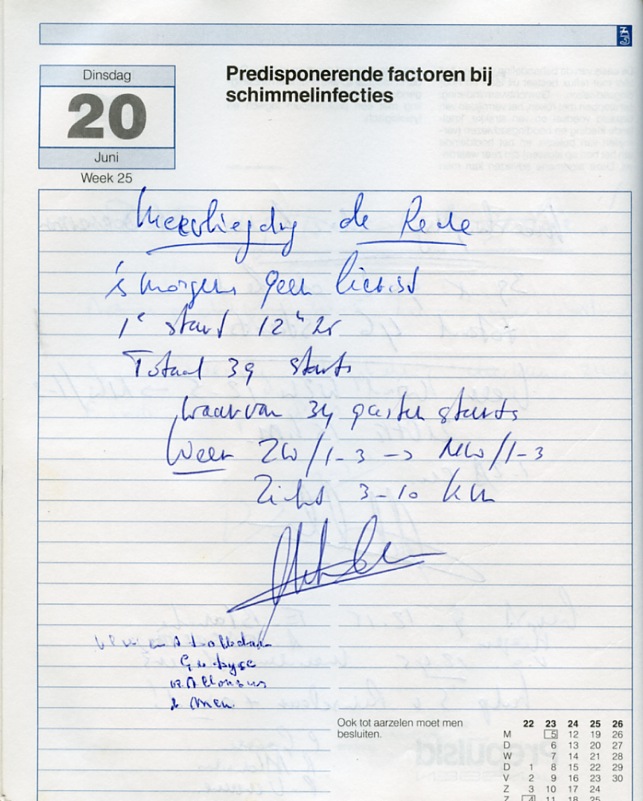 Dinsdag
20
Juni
Week 25
Predisponerende factoren bij
schimmelinfecties
de Rede
's morgens geen lierist
1e start 12 42
Totaal 39 starts
waarvan 34 gasten starts
Weer ZW/1-3 -> NW/1-3
Zicht 3-10 km
Ook tot aarzelen moet men
besluiten.
22 23 24 25 26
M 5 12 19 26
D 6 13 20 27
W 7 14 21 28
D 1 8 15 22 29
V 2 9 16 23 30
Z 3 10 17 24
Z 4 11 18 25